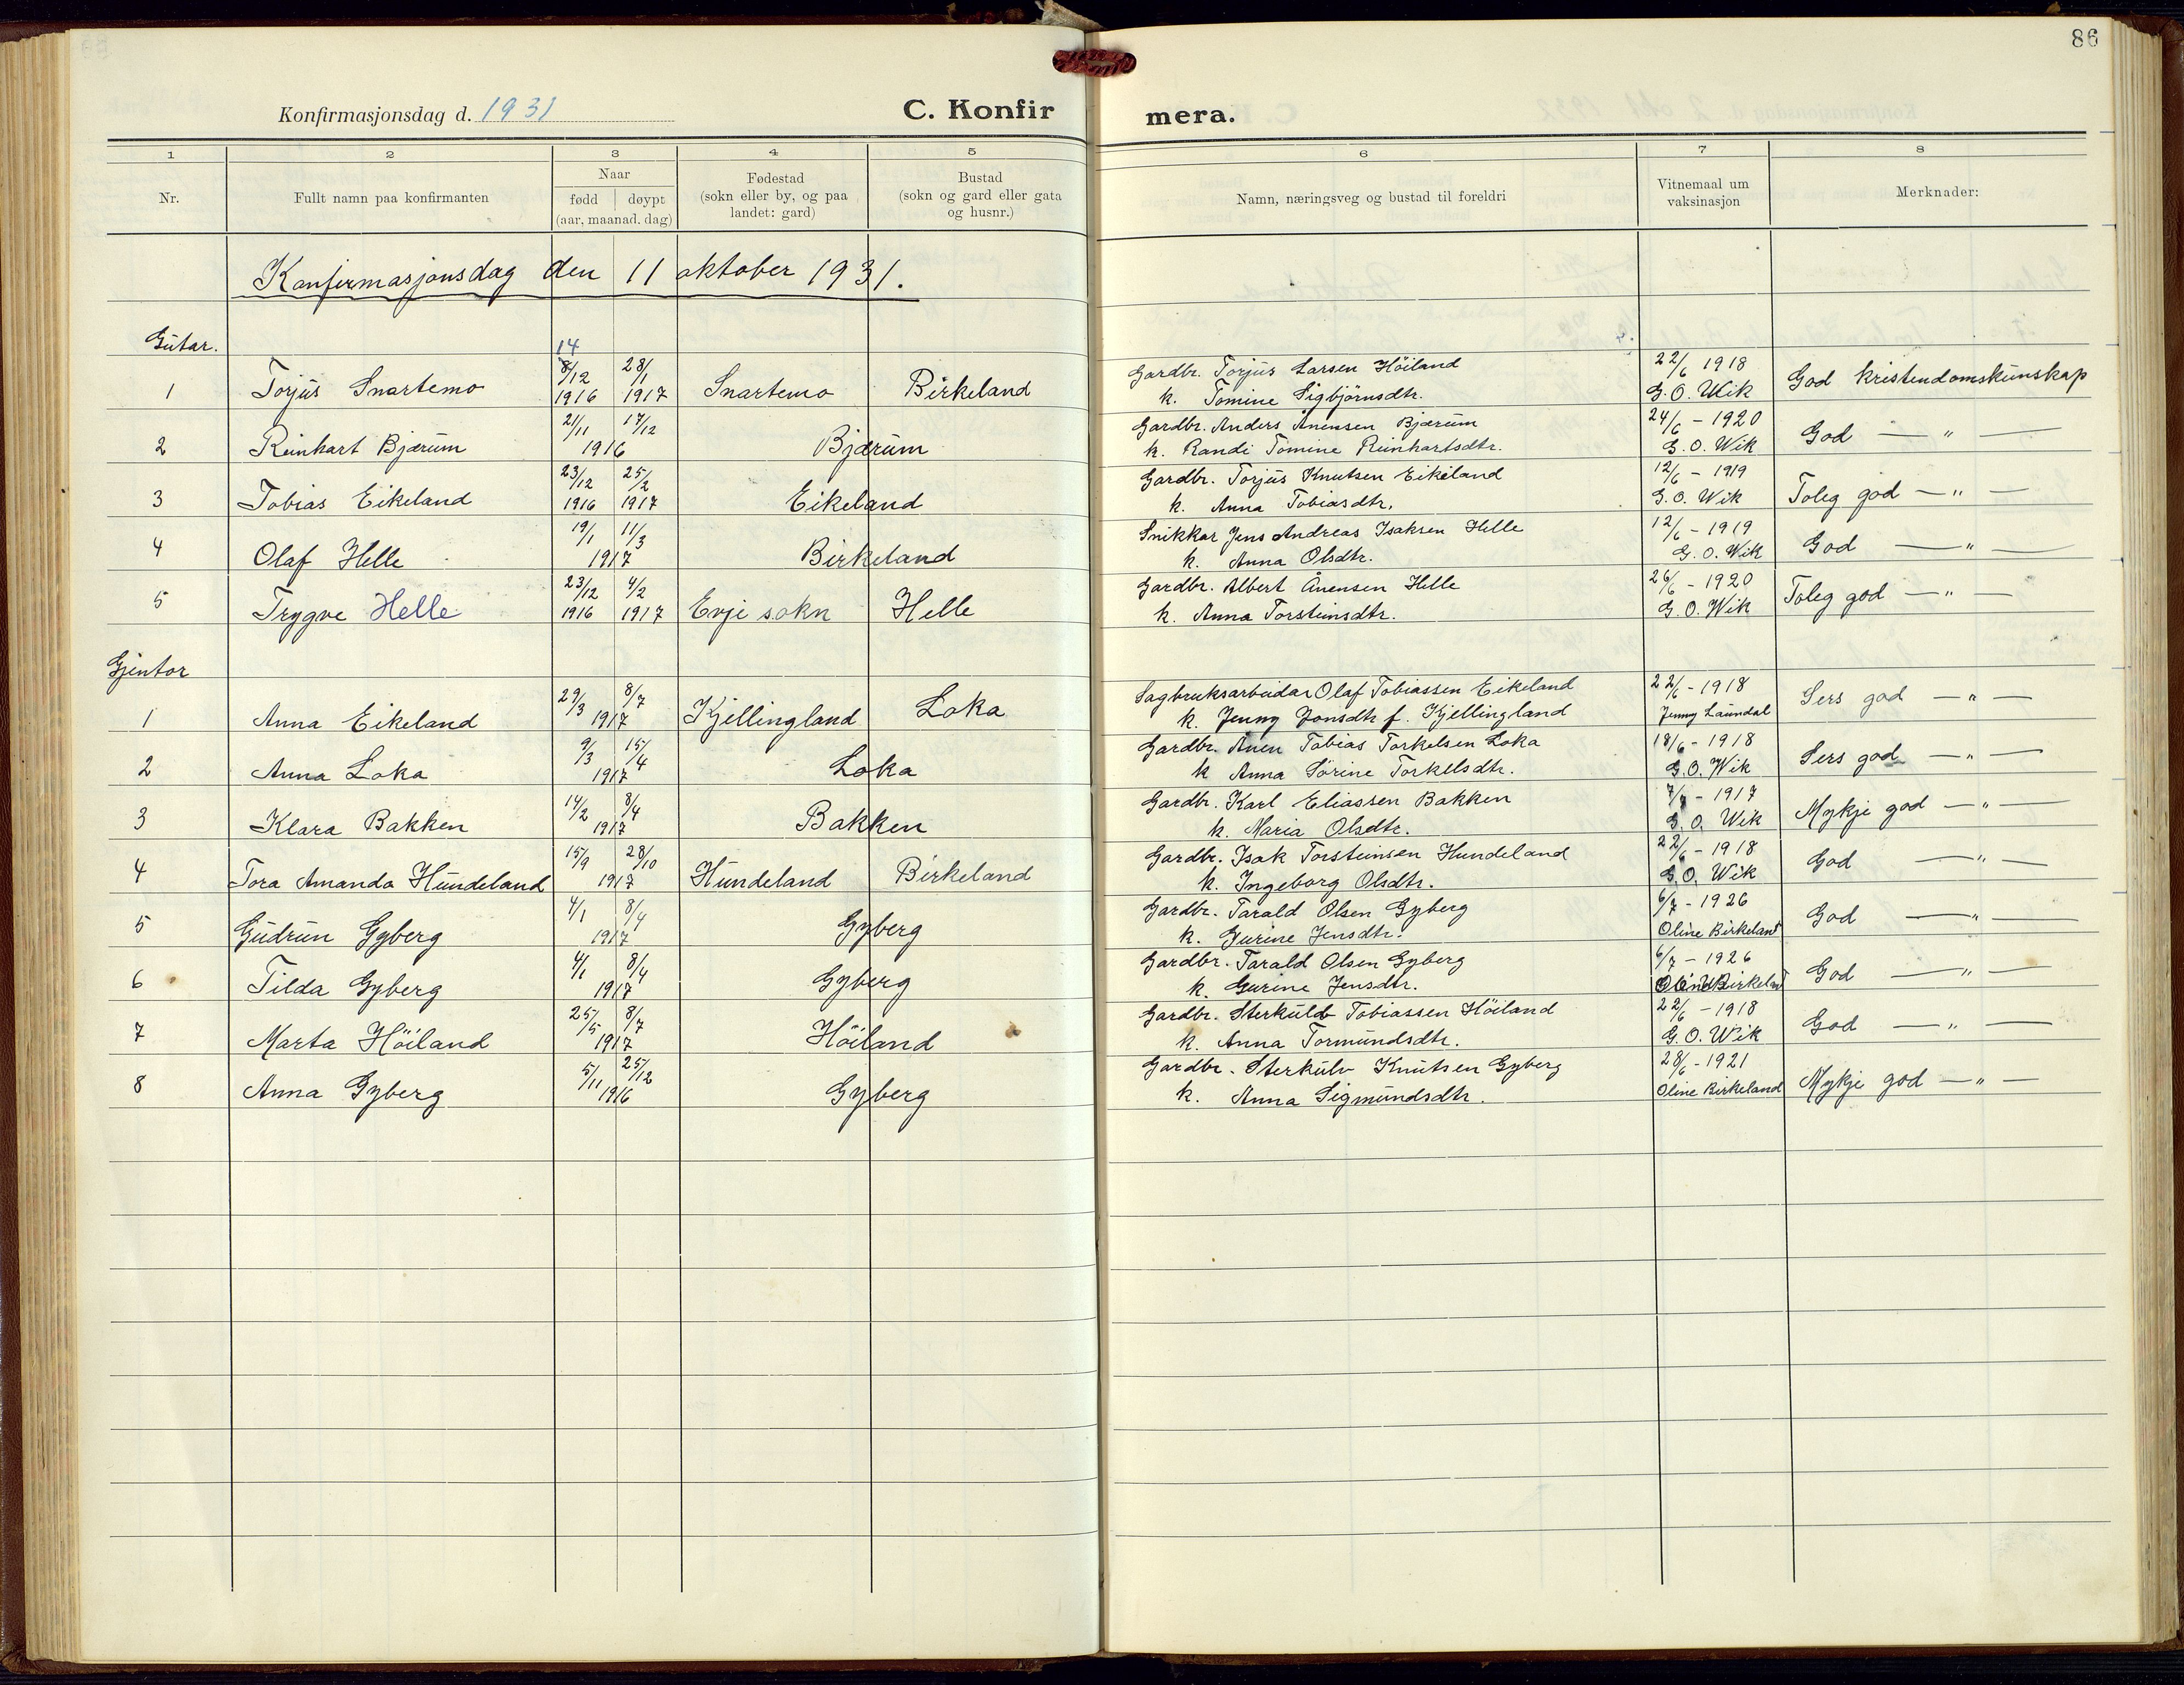 86
Konfirmasjonsdag d. 1931 C. Konfirmera.
1 2 3 4 5 6 7 8
Nr. Fullt namn paa konfirmanten Naar fødd døypt (aar, maanad. dag) Fødestad (sokn eller by, og paa landet: gard) Bustad (sokn og gard eller gata og husnr.) Namn, næringsveg og bustad til foreldri Vitnemaal um vaksinasjon Merknader:
Konfirmasjonsdag den 11 oktober 1931.
Gutar.
14
8/12 28/1 Gardbr. Torjus Larsen Höiland 22/6 1918
1 Torjus Snartemo 1916 1917 Snartemo Birkeland k. Tomine Sigbjörnsdtr. G.O. Wik God kristendomskunskap
21/11 17/12 Gardbr. Anders Ånensen Bjærum 24/6 - 1920
2 Reinhart Bjærum 1916 Bjærum k. Randi Tomine Reinhartsdtr. G.O. Wik God — " —
23/12 25/2 Gardbr. Torjus Knutsen Eikeland 12/6 - 1919
3 Tobias Eikeland 1916 1917 Eikeland k. Anna Tobiasdtr. G.O. Wik Toleg god — " —
19/1 11/3 Snikkar Jens Andreas Isaksen Helle 12/6 - 1919
4 Olaf Helle 1917 Birkeland k. Anna Olsdtr. G.O. Wik God — " —
23/12 4/2 Gardbr. Albert Ånensen Helle 26/6 - 1920
5 Trygve Helle 1916 1917 Evje sokn Helle k. Anna Torsteinsdtr. G.O. Wik Toleg god — " —
Gjentor
29/3 8/7 Sagbruksarbeidar Olaf Tobiassen Eikeland 22/6 - 1918
1 Anna Eikeland 1917 Kjellingland Loka k. Jenny Jonsdtr f. Kjellingland Jenny Laundal Sers god — " —
9/3 15/4 Gardbr. Ånen Tobias Torkelsen Loka 18/6 - 1918
2 Anna Loka 1917 Loka k Anna Sörine Torkelsdtr. G.O. Wik Sers god — " —
14/2 8/4 Gardbr. Karl Eliassen Bakken - 1917
3 Klara Bakken 1917 Bakken k. Maria Olsdtr. G.O. Wik Mykje god — " —
15/9 28/10 Gardbr. Isak Torsteinsen Hundeland 22/6 - 1918
4 Tora Amanda Hundeland 1917 Hundeland Birkeland k. Ingeborg Olsdtr. G.O. Wik God — " —
4/1 8/4 Gardbr. Tarald Olsen Gyberg 6/7 - 1926
5 Gudrun Gyberg 1917 Gyberg k. Gurine Jensdtr. Oline Birkeland God — " —
4/1 8/4 Gardbr. Tarald Olsen Gyberg 6/7 - 1926
6 Tilda Gyberg 1917 Gyberg k. Gurine Jensdtr. Birkeland God — " —
25/5 8/7 Gardbr. Sterkulv Tobiassen Höiland 22/6 - 1918
7 Marta Höiland 1917 Höiland k. Anna Tormundsdtr. G.O. Wik God — " —
5/11 25/12 Gardbr. Sterkulv Knutsen Gyberg 28/6 - 1921
8 Anna Gyberg 1916 Gyberg k. Anna Sigmundsdtr. Oline Birkeland Mykje god — " —